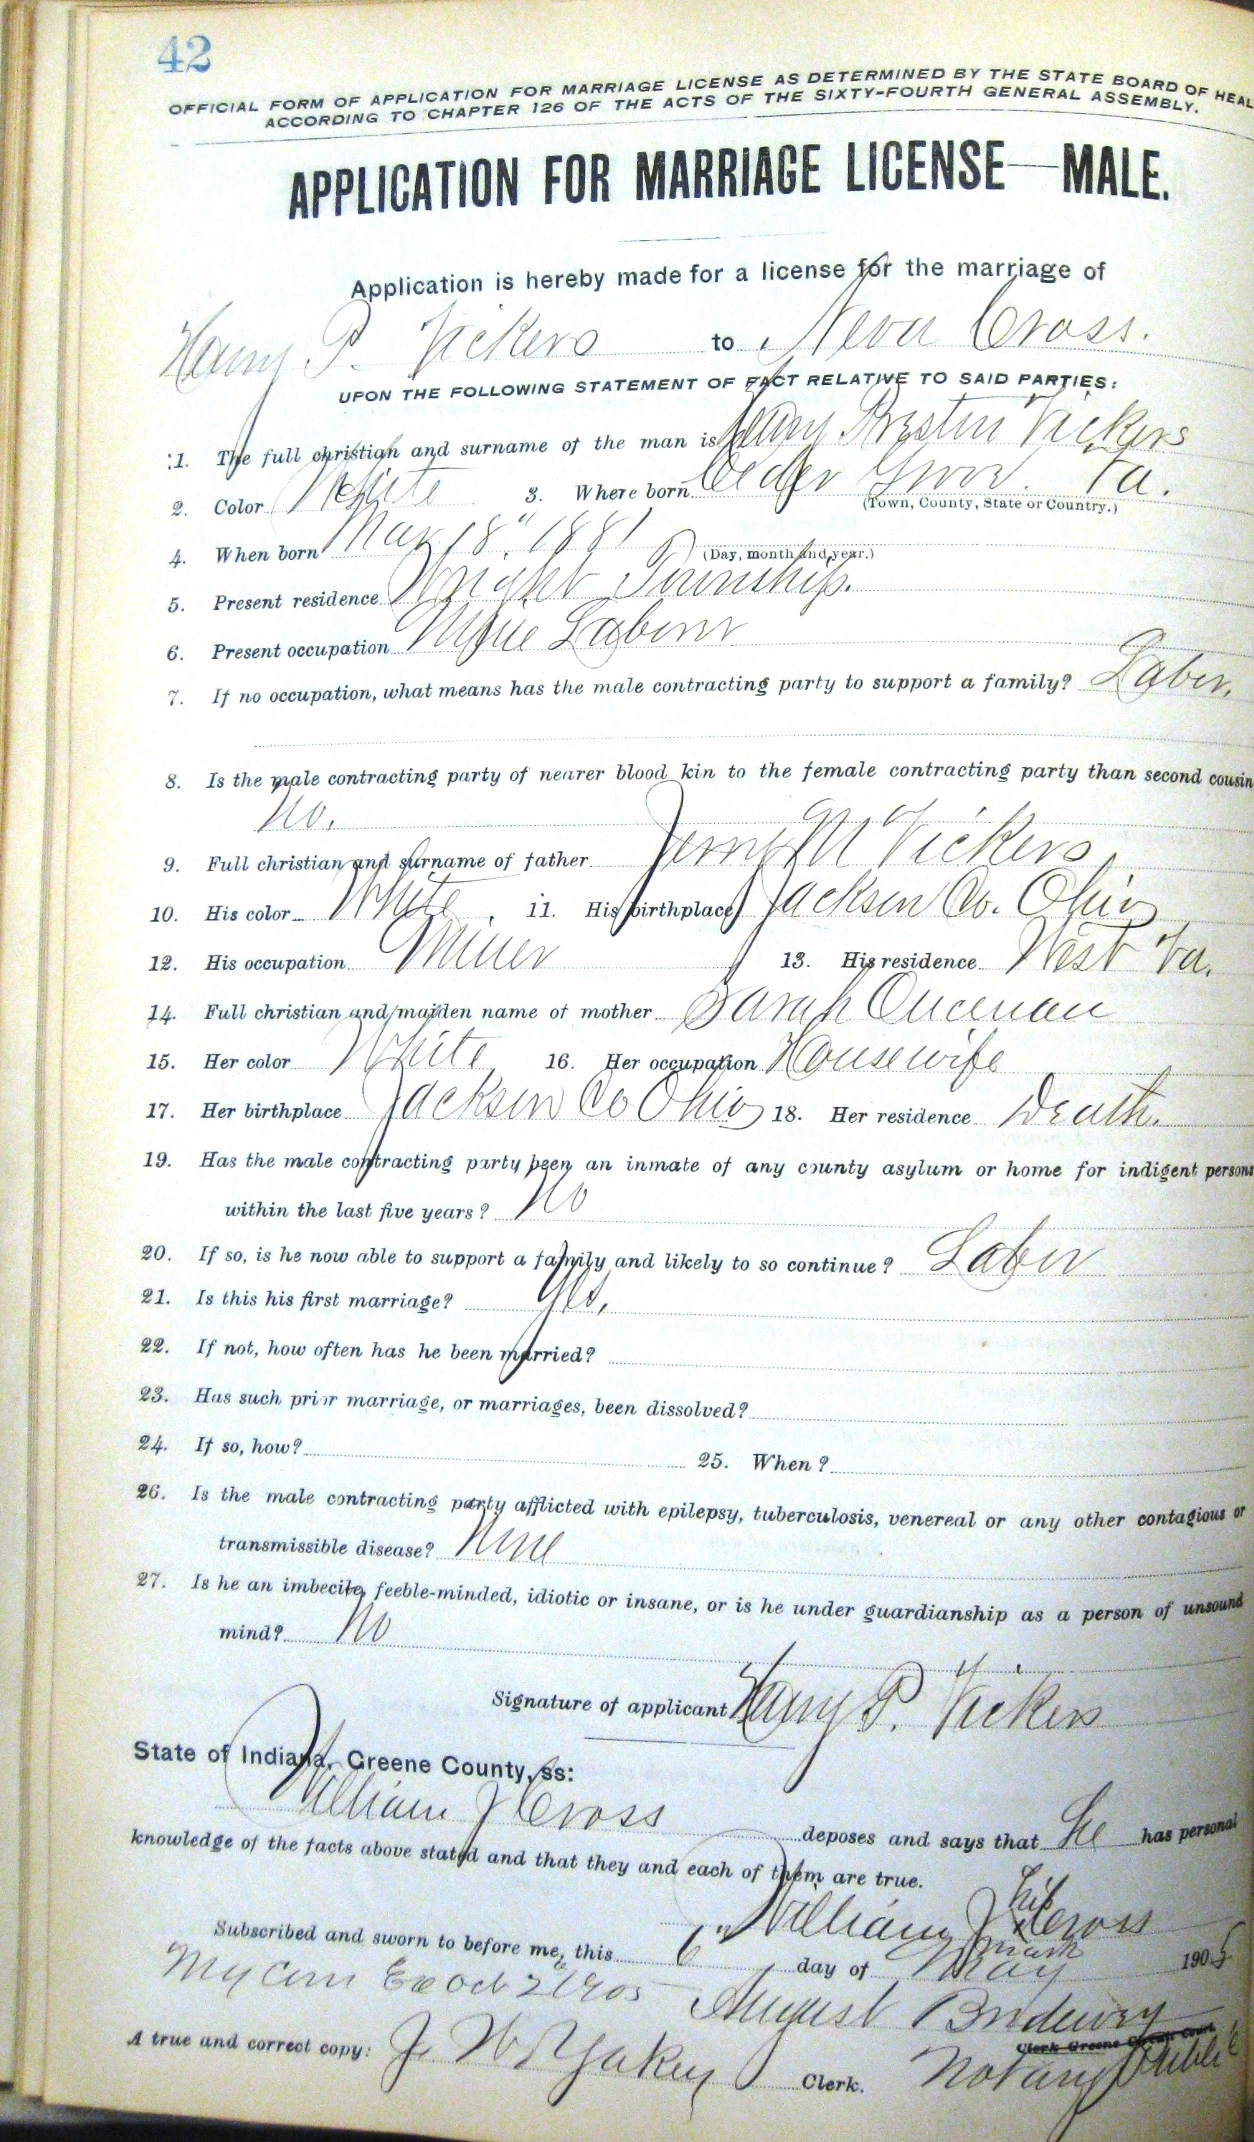 42
OFFICIAL FORM OF APPLICATION FOR MARRIAGE LICENSE AS DETERMINED BY THE STATE BOARD OF HEAL
ACCORDING TO CHAPTER 126 OF THE ACTS OF THE SIXTY-FOURTH GENERAL ASSEMBLY.
APPLICATION FOR MARRIAGE LICENSE—MALE.
Application is hereby made for a license for the marriage of
Harry P. Vickers to Neva Cross.
UPON THE FOLLOWING STATEMENT OF FACT RELATIVE TO SAID PARTIES:
1. The full christian and surname of the man is Harry Preston Vickers
2. Color White 3. Where born Va.
(Town, County, State or Country.)
4. When born 18" 1881 (Day, month and year.)
5. Present residence Wright Township.
6. Present occupation Mine Laborer
7. If no occupation, what means has the male contracting party to support a family? Labor.
8. Is the male contracting party of nearer blood kin to the female contracting party than second cousin
No.
9. Full christian and surname of father M Vickers
10. His color White. 11. His birthplace Jackson Co. Ohio
12. His occupation Miner 13. His residence West Va.
14. Full christian and maiden name of mother Sarah
15. Her color White 16. Her occupation Housewife
17. Her birthplace Jackson Co Ohio 18. Her residence Death.
19. Has the male contracting party been an inmate of any county asylum or home for indigent persons
within the last five years? No
20. If so, is he now able to support a family and likely to so continue? Labor
21. Is this his first marriage? Yes.
22. If not, how often has he been married?
23. Has such prior marriage, or marriages, been dissolved?
24. If so, how? 25. When?
26. Is the male contracting party afflicted with epilepsy, tuberculosis, venereal or any other contagious or
transmissible disease? None
27. Is he an imbecile, feeble-minded, idiotic or insane, or is he under guardianship as a person of unsound
mind? No
Signature of applicant Harry P. Vickers
State of Indiana, Greene County, ss:
William J Cross deposes and says that he has personal
knowledge of the facts above stated and that they and each of them are true.
William J his x mark Cross
Subscribed and sworn to before me, this 6" day of May 1905
My Com Ex Oct 2 1905 August
Clerk Greene Circuit Court.
A true and correct copy: J. W. Yakey Clerk. Notary Public